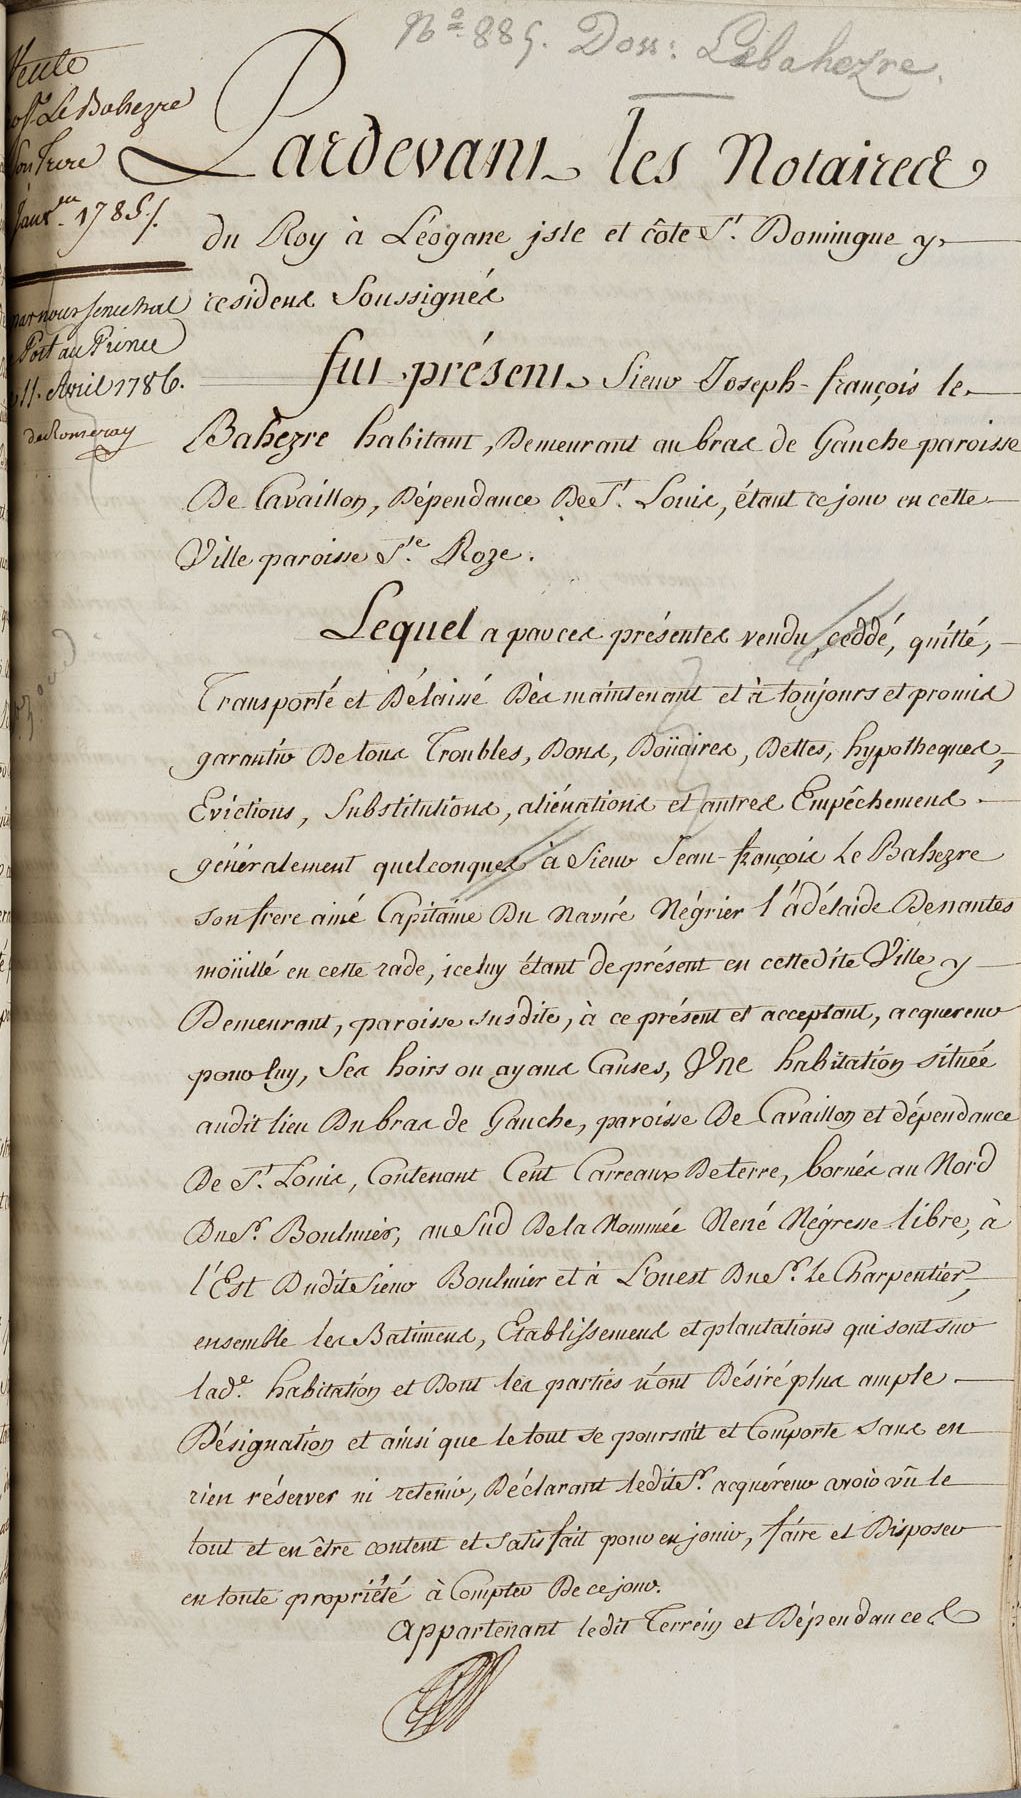 No. 885. Doss: Lebahezre.
Vente
Le Bahezre
Son frere
1785./.
Senechal
Port au Prince
11. Avril 1786.
deRomeray
Pardevant les Notaires
du Roy à Léogane jsle et côte St. Domingue y
residens Soussignés
fut présent Sieur Joseph-françois le
Bahezre habitant, Demeurant au bras de Gauche paroisse
De Cavaillon, Dépendance De St. Louis, étant ce jour en cette
Ville paroisse Ste. Roze.
Lequel a par ces présentes vendu, ceddé, quitté,
Transporté et Délaissé Dès maintenant et à toujours et promis
garantir De tous Troubles, Dons, Doüaires, Dettes, hypotheques,
Evictions, Substitutions, aliénations et autres Empêchemens
généralement quelconques à Sieur Jean-françois Le Bahezre
son frere ainé Capitaine Du Navire Négrier l'adélaide De nantes
moüillé en cette rade, iceluy étant de présent en cettedite Ville y
Demeurant, paroisse susdite, à ce présent et acceptant, acquereur
pour luy, Ses hoirs ou ayans Causes, Une habitation située
audit lieu Du bras de Gauche, paroisse De Cavaillon et dépendance
De St. Louis, Contenant Cent Carreaux De terre, bornés au Nord
Du Sr. Boulmier, au Sud De la Nommée Nené Négresse libre, à
l'Est Dudit Sieur Boulmier et à L'ouest Du Sr. le Charpentier,
ensemble les Batimens, Etablissemens et plantations qui sont sur
lade. habitation et Dont les parties n'ont Désiré plus ample
Désignation et ainsi que le tout se poursuit et Comporte sans en
rien réserver ni retenir, Déclarant ledit Sr. acquéreur avoir vû le
tout et en être content et satisfait pour en jouir, faire et Disposer
en toute propriété à Compter De ce jour.
Appartenant ledit Terrein et Dépendances